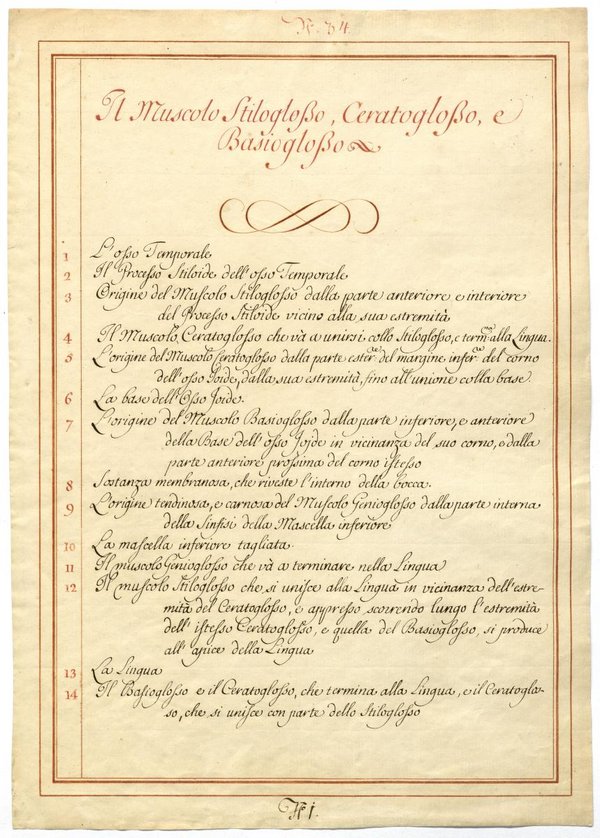 N. 34.
Il Muscolo Stiloglosso, Ceratoglosso, e
Basioglosso
1 L'osso Temporale
2 Il Processo Stiloide dell'osso Temporale
3 Origine del Muscolo Stiloglosso dalla parte anteriore e interiore
del Processo Stiloide vicino alla sua estremità
4 Il Muscolo, Ceratoglosso che và a unirsi collo Stiloglosso, e term.no alla Lingua.
5 L'origine del Muscolo Ceratoglosso dalla parte ester.re del margine infer.re del corno
dell'osso Joide, dalla sua estremità, fino all'unione colla base.
6 La base dell'Osso Joide.
7 L'origine del Muscolo Basioglosso dalla parte inferiore, e anteriore
della Base dell'osso Jojde in vicinanza del suo corno, e dalla
parte anteriore prossima del corno istesso
8 Sostanza membranosa, che riveste l'interno della bocca.
9 L'origine tendinosa, e carnosa del Muscolo Genioglosso dalla parte interna
della Sinfisi della Mascella inferiore
10 La mascella inferiore tagliata
11 Il muscolo Genioglosso che và a terminare nella Lingua
12 Il muscolo Stiloglosso che si unisce alla Lingua in vicinanza dell'estre-
mità del Ceratoglosso, e appresso scorrendo lungo l'estremità
dell'istesso Ceratoglosso, e quella del Basioglosso, si produce
all'apice della Lingua
13 La Lingua
14 Il Basioglosso e il Ceratoglosso, che termina alla Lingua, e il Ceratoglos-
so, che si unisce con parte dello Stiloglosso
N. 1.